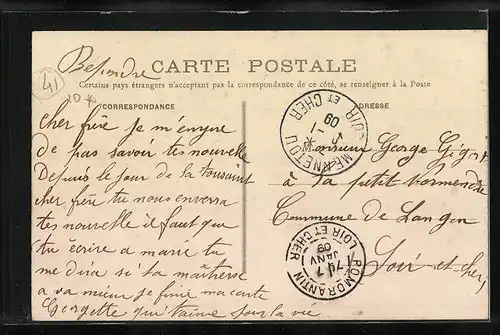 Repondre
CARTE POSTALE
Certains pays étrangers n'acceptant pas la correspondance de ce côté, se renseigner à la Poste
41
CORRESPONDANCE
ADRESSE
cher frère je m'ennuie
de pas savoir tes nouvelle
Depuis le jour de la tousaint
cher frère tu nous enverra
tes nouvelle il faut que
tu écrire a marie tu
me dira si ta maîtresse
a va mieux je finie ma carte
Georgette qui t'aime pour la vie
MENNETOU
LOIR ET CHER
09
Monsieur George
à la petit
Commune de Langon
Loir-et-cher
ROMORANTIN
LOIR ET CHER
JANV
09